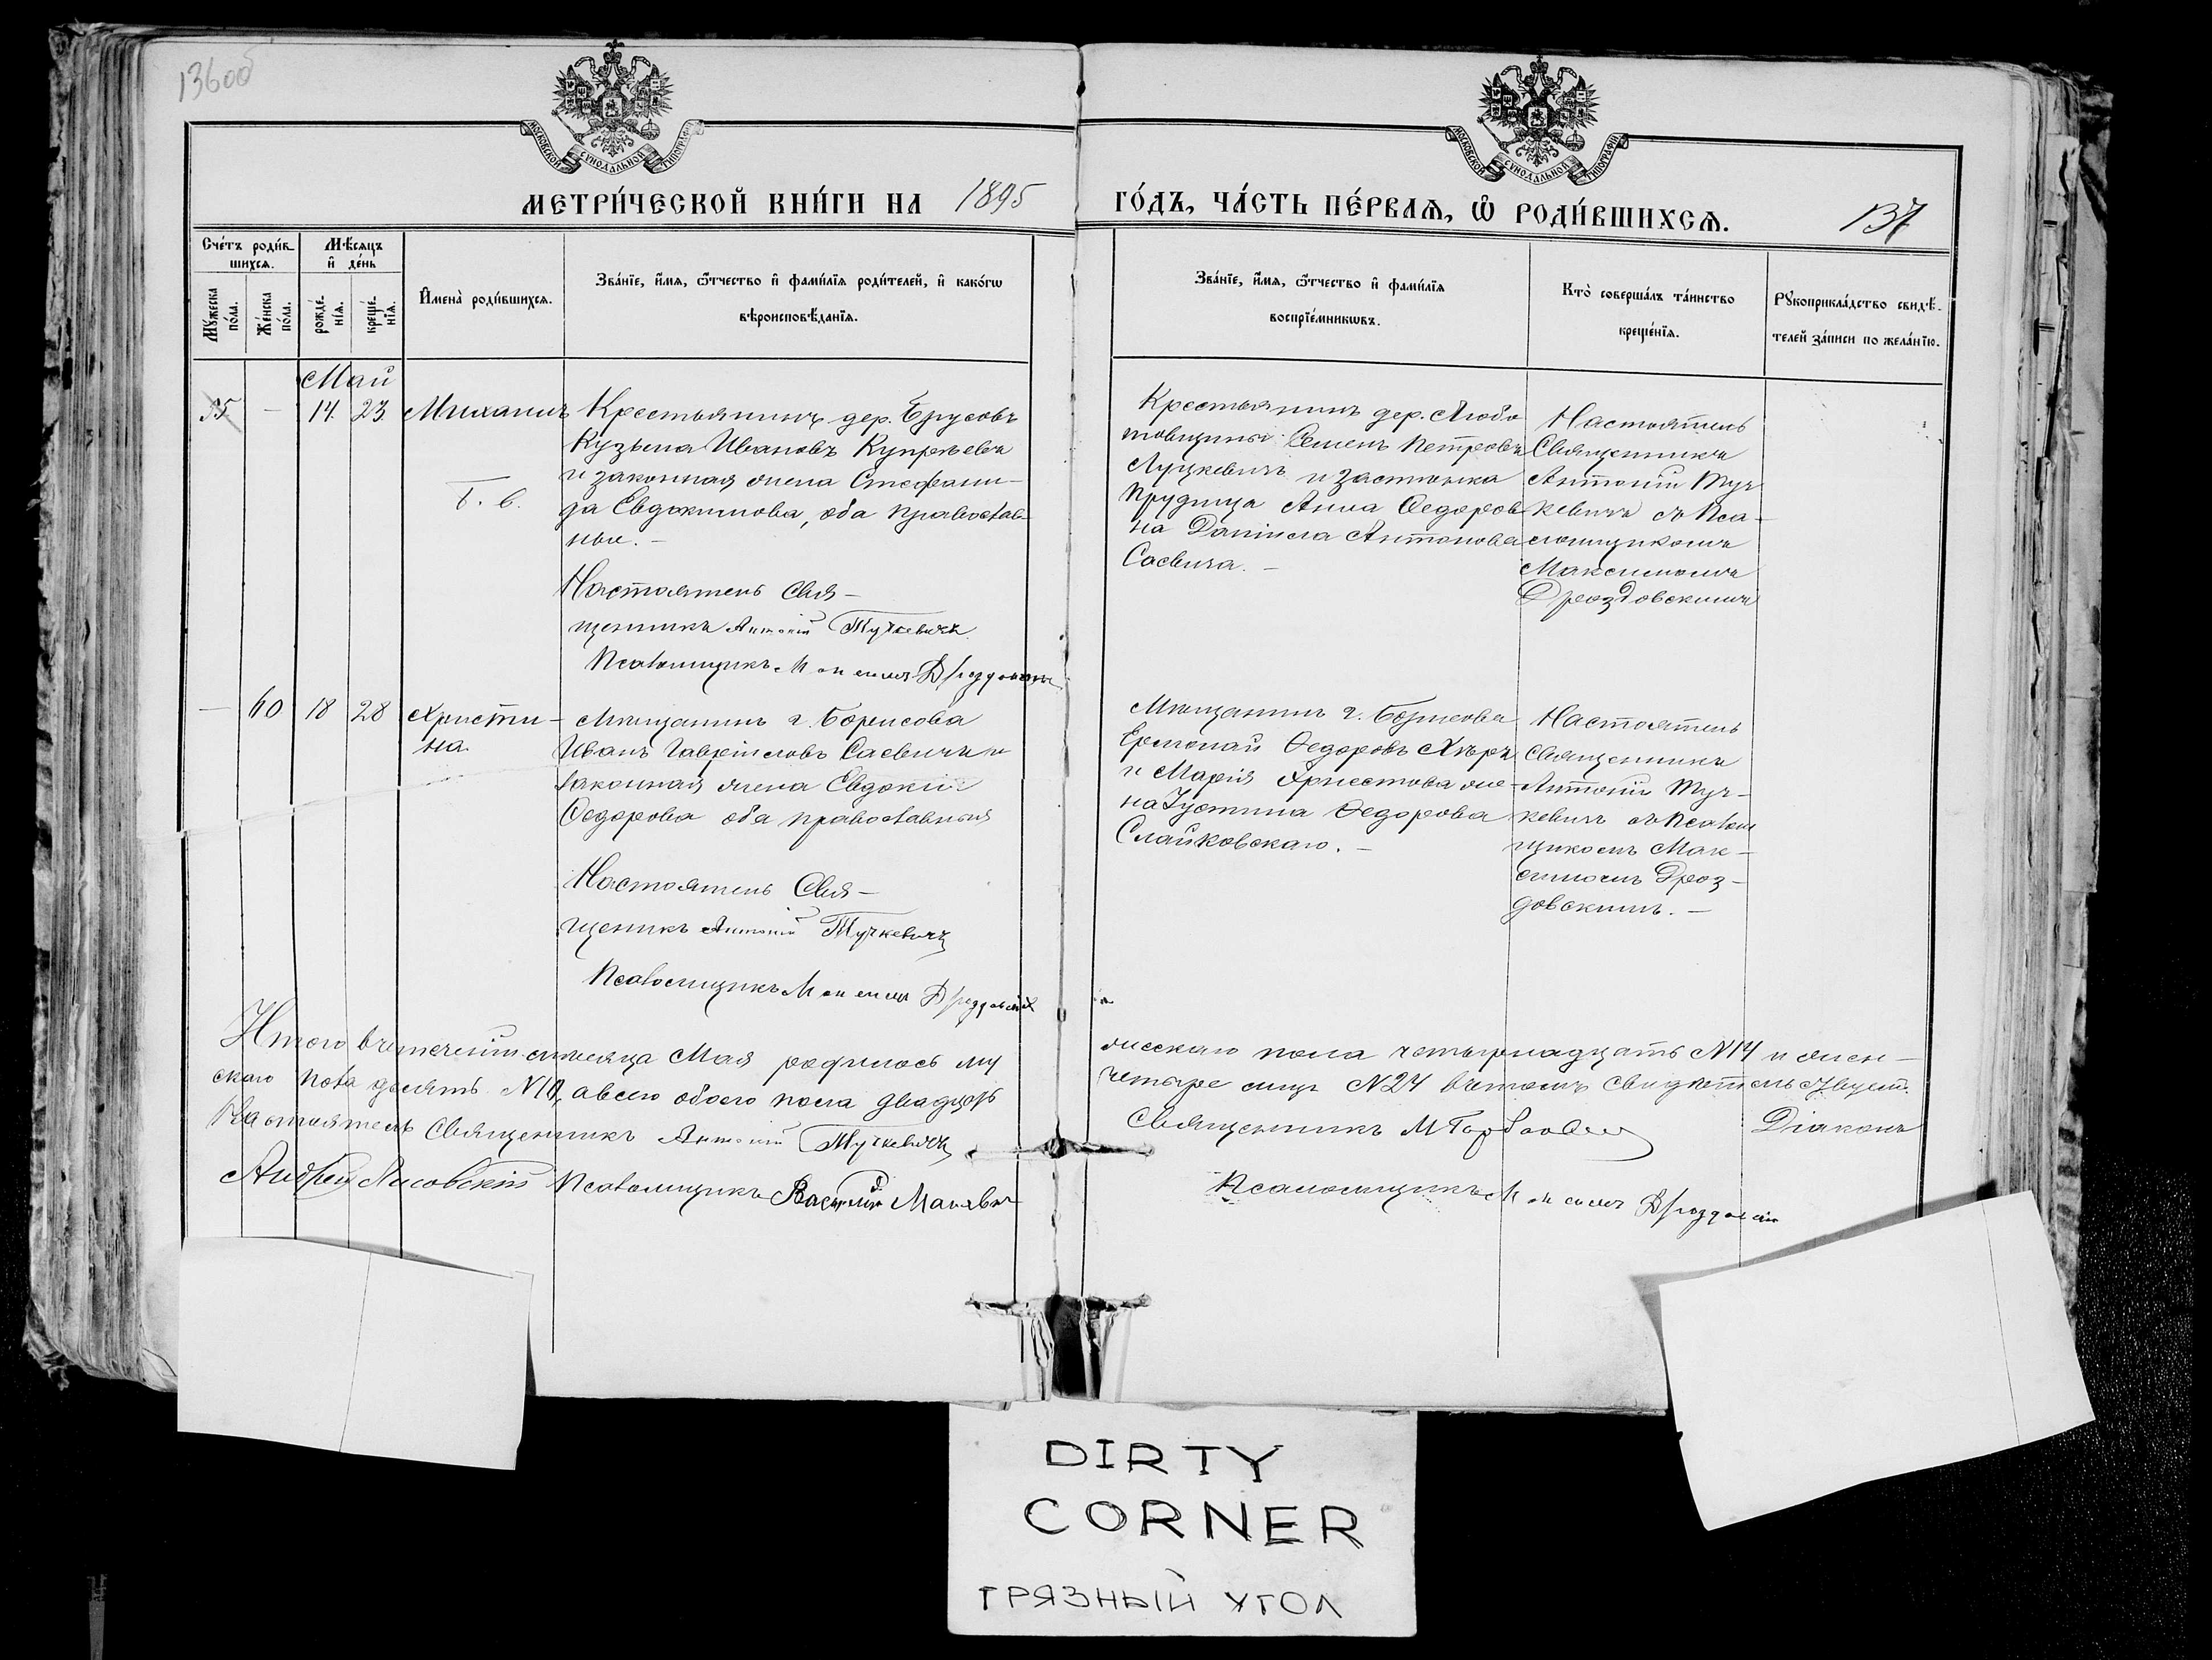 136об
МОСКОВСКОЙ СѴНОДАЛЬНОЙ ТИПОГРАФІИ
МОСКОВСКОЙ СѴНОДАЛЬНОЙ ТИПОГРАФІИ
МЕТРИ́ЧЕСКОЙ КНИ́ГИ НА 1895
ГО́ДЪ, ЧА́СТЬ ПЕ́РВАЯ, Ѡ҆ РОДИ́ВШИХСЯ.
137
Сче́тъ роди́в-
шихся.
Мѣ́сяцъ
и҆ де́нь
Мꙋ́жеска
по́ла.
Же́нска
по́ла.
рожде́-
нїя.
креще́-
нїя.
И҆мена̀ роди́вшихся.
Зва́нїе, и҆́мя, ѻ҆́тчество и҆ фами́лїя роди́телей, и҆ како́гѡ
вѣроисповѣ́данїя.
Зва́нїе, и҆́мя, ѻ҆́тчество и҆ фами́лїя
воспрїе́мникѡвъ.
Кто̀ соверша́лъ та́инство
креще́нїя.
Рꙋкоприкла́дство свидѣ́-
телей за́писи по жела́нїю.
Май
55 - 14. 23. Михаилъ
Крестьянинъ дер. Брусовъ
Кузьма Ивановъ Купрѣевъ
и законная жена Стефани-
да Евдокимова, оба православ-
ные. -
Настоятель Свя-
щенникъ Антоній Тучкевичъ
Псаломщикъ Максимъ Дроздовскій
Крестьянинъ дер. Любо
товщины Семенъ Петровъ
Луцкевичъ и застѣнка
Прудища Анна Ѳедоров
на Даніила Антонова
Саевича. -
Настоятель
Священникъ
Антоній Туч-
кевичъ съ Пса-
ломщикомъ
Максимомъ
Дроздовскимъ
- 60 18 28 Христи-
на.
Мѣщанинъ г. Борисова
Иванъ Гавріиловъ Саевичъ и
законная жена Евдокія
Ѳедорова оба православныя
Настоятель Свя-
щенникъ Антоній Тучкевичъ
Псаломщикъ Максимъ Дроздовскій
Мѣщанинъ г. Борисова
Ермолай Ѳедоровъ
и Марія Христова же-
на Іустина Ѳедорова
Слайковскаго. -
Настоятель
Священникъ
Антоній Туч-
кевичъ съ Псалом
щикомъ Мак-
симомъ Дроз-
довскимъ. -
Итого въ теченіи мѣсяца Мая родилось му
жескаго пола четырнадцать N14 и жен-
скаго пола десять N10, а всего обоего пола двадцать
четыре лицъ N24 въ томъ свидѣтельствуетъ.
Настоятель Священникъ Антоній Тучкевичъ
Священникъ М
Діаконъ
Андрей Лисовскій Псаломщикъ Василій
Псаломщикъ Максимъ Дроздовскій
DIRTY
CORNER
ГРЯЗНЫЙ УГОЛ